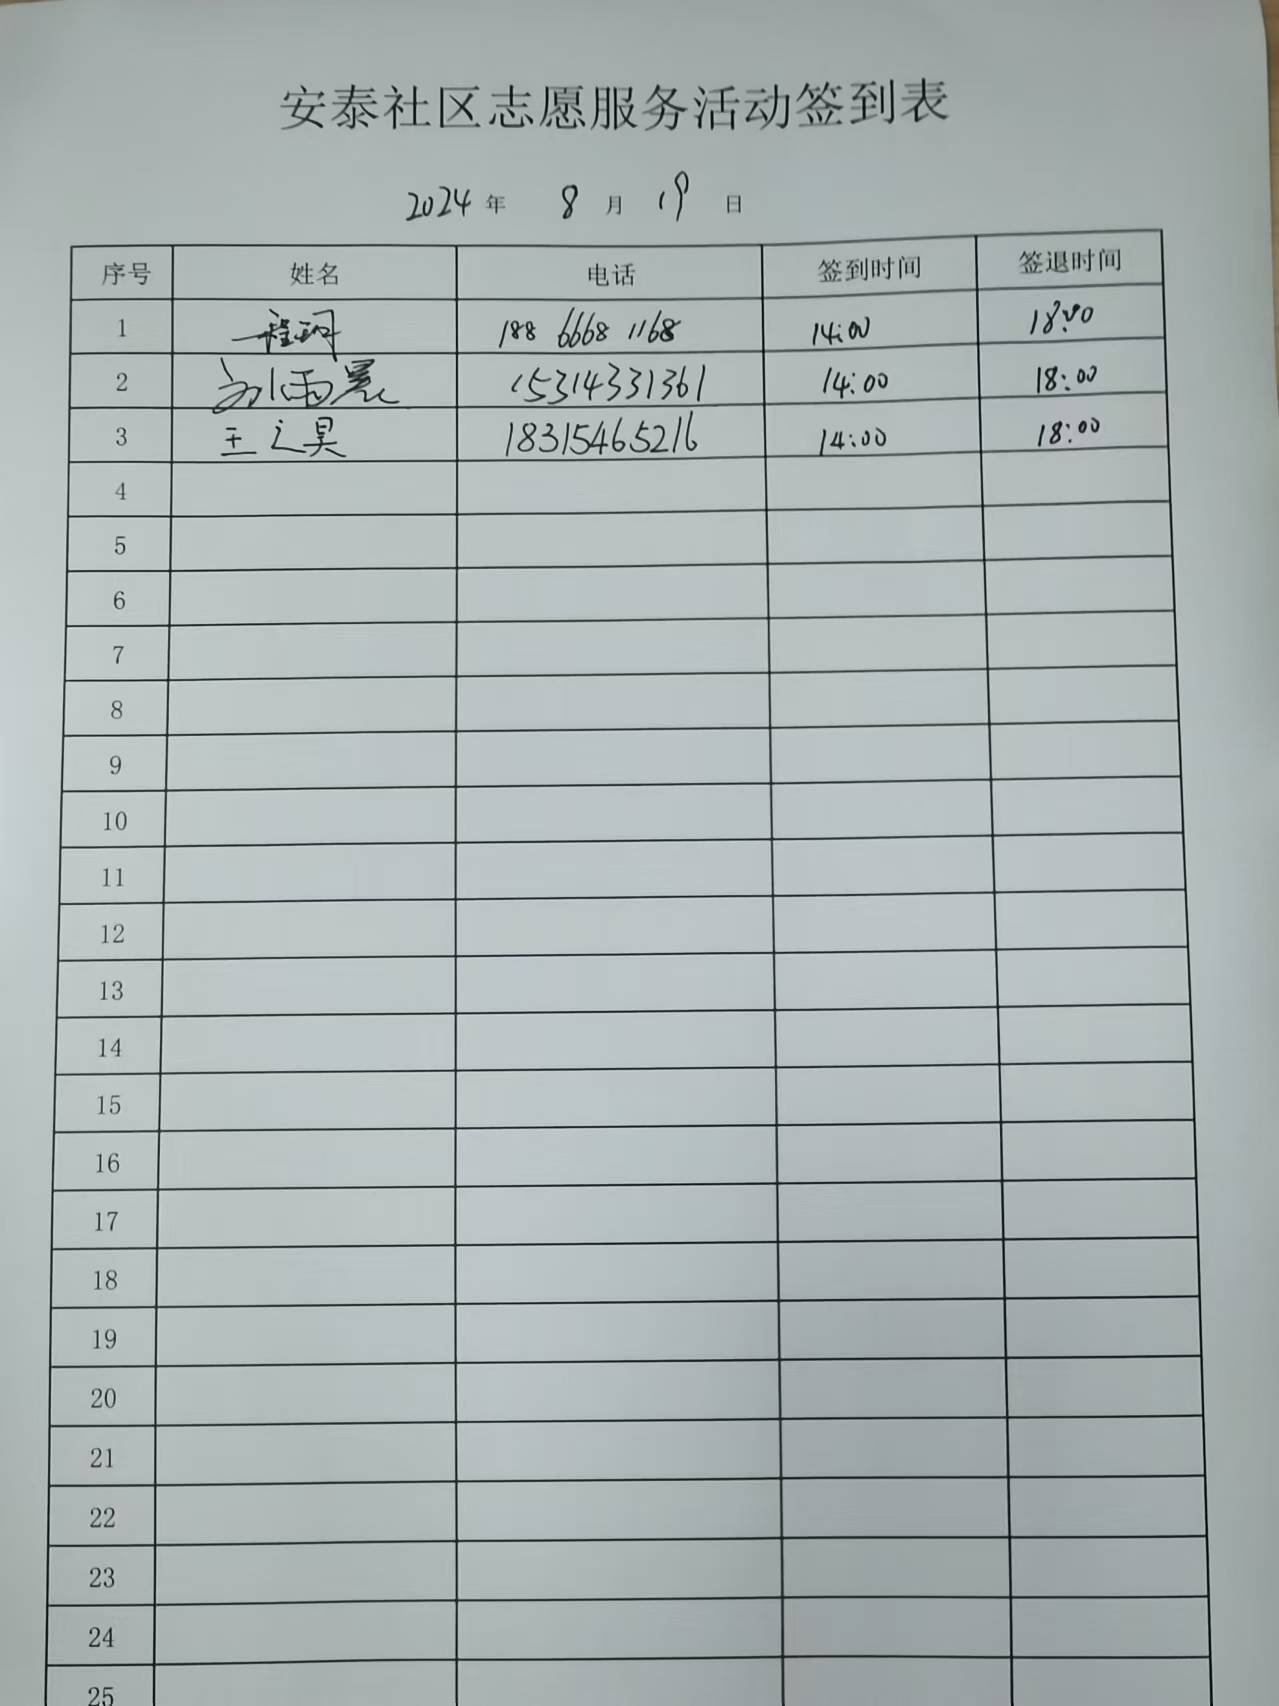 安泰社区志愿服务活动签到表
2024 年 8 月 19 日
序号 姓名 电话 签到时间 签退时间
1 程珂 188 6668 1168 14:00 18:00
2 刘雨晨 15314331361 14:00 18:00
3 王之昊 18315465216 14:00 18:00
4
5
6
7
8
9
10
11
12
13
14
15
16
17
18
19
20
21
22
23
24
25